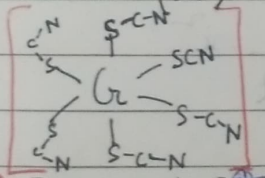 N S-C-N
C
S SCN
Cr
S S-C-N
C-N S-C-N